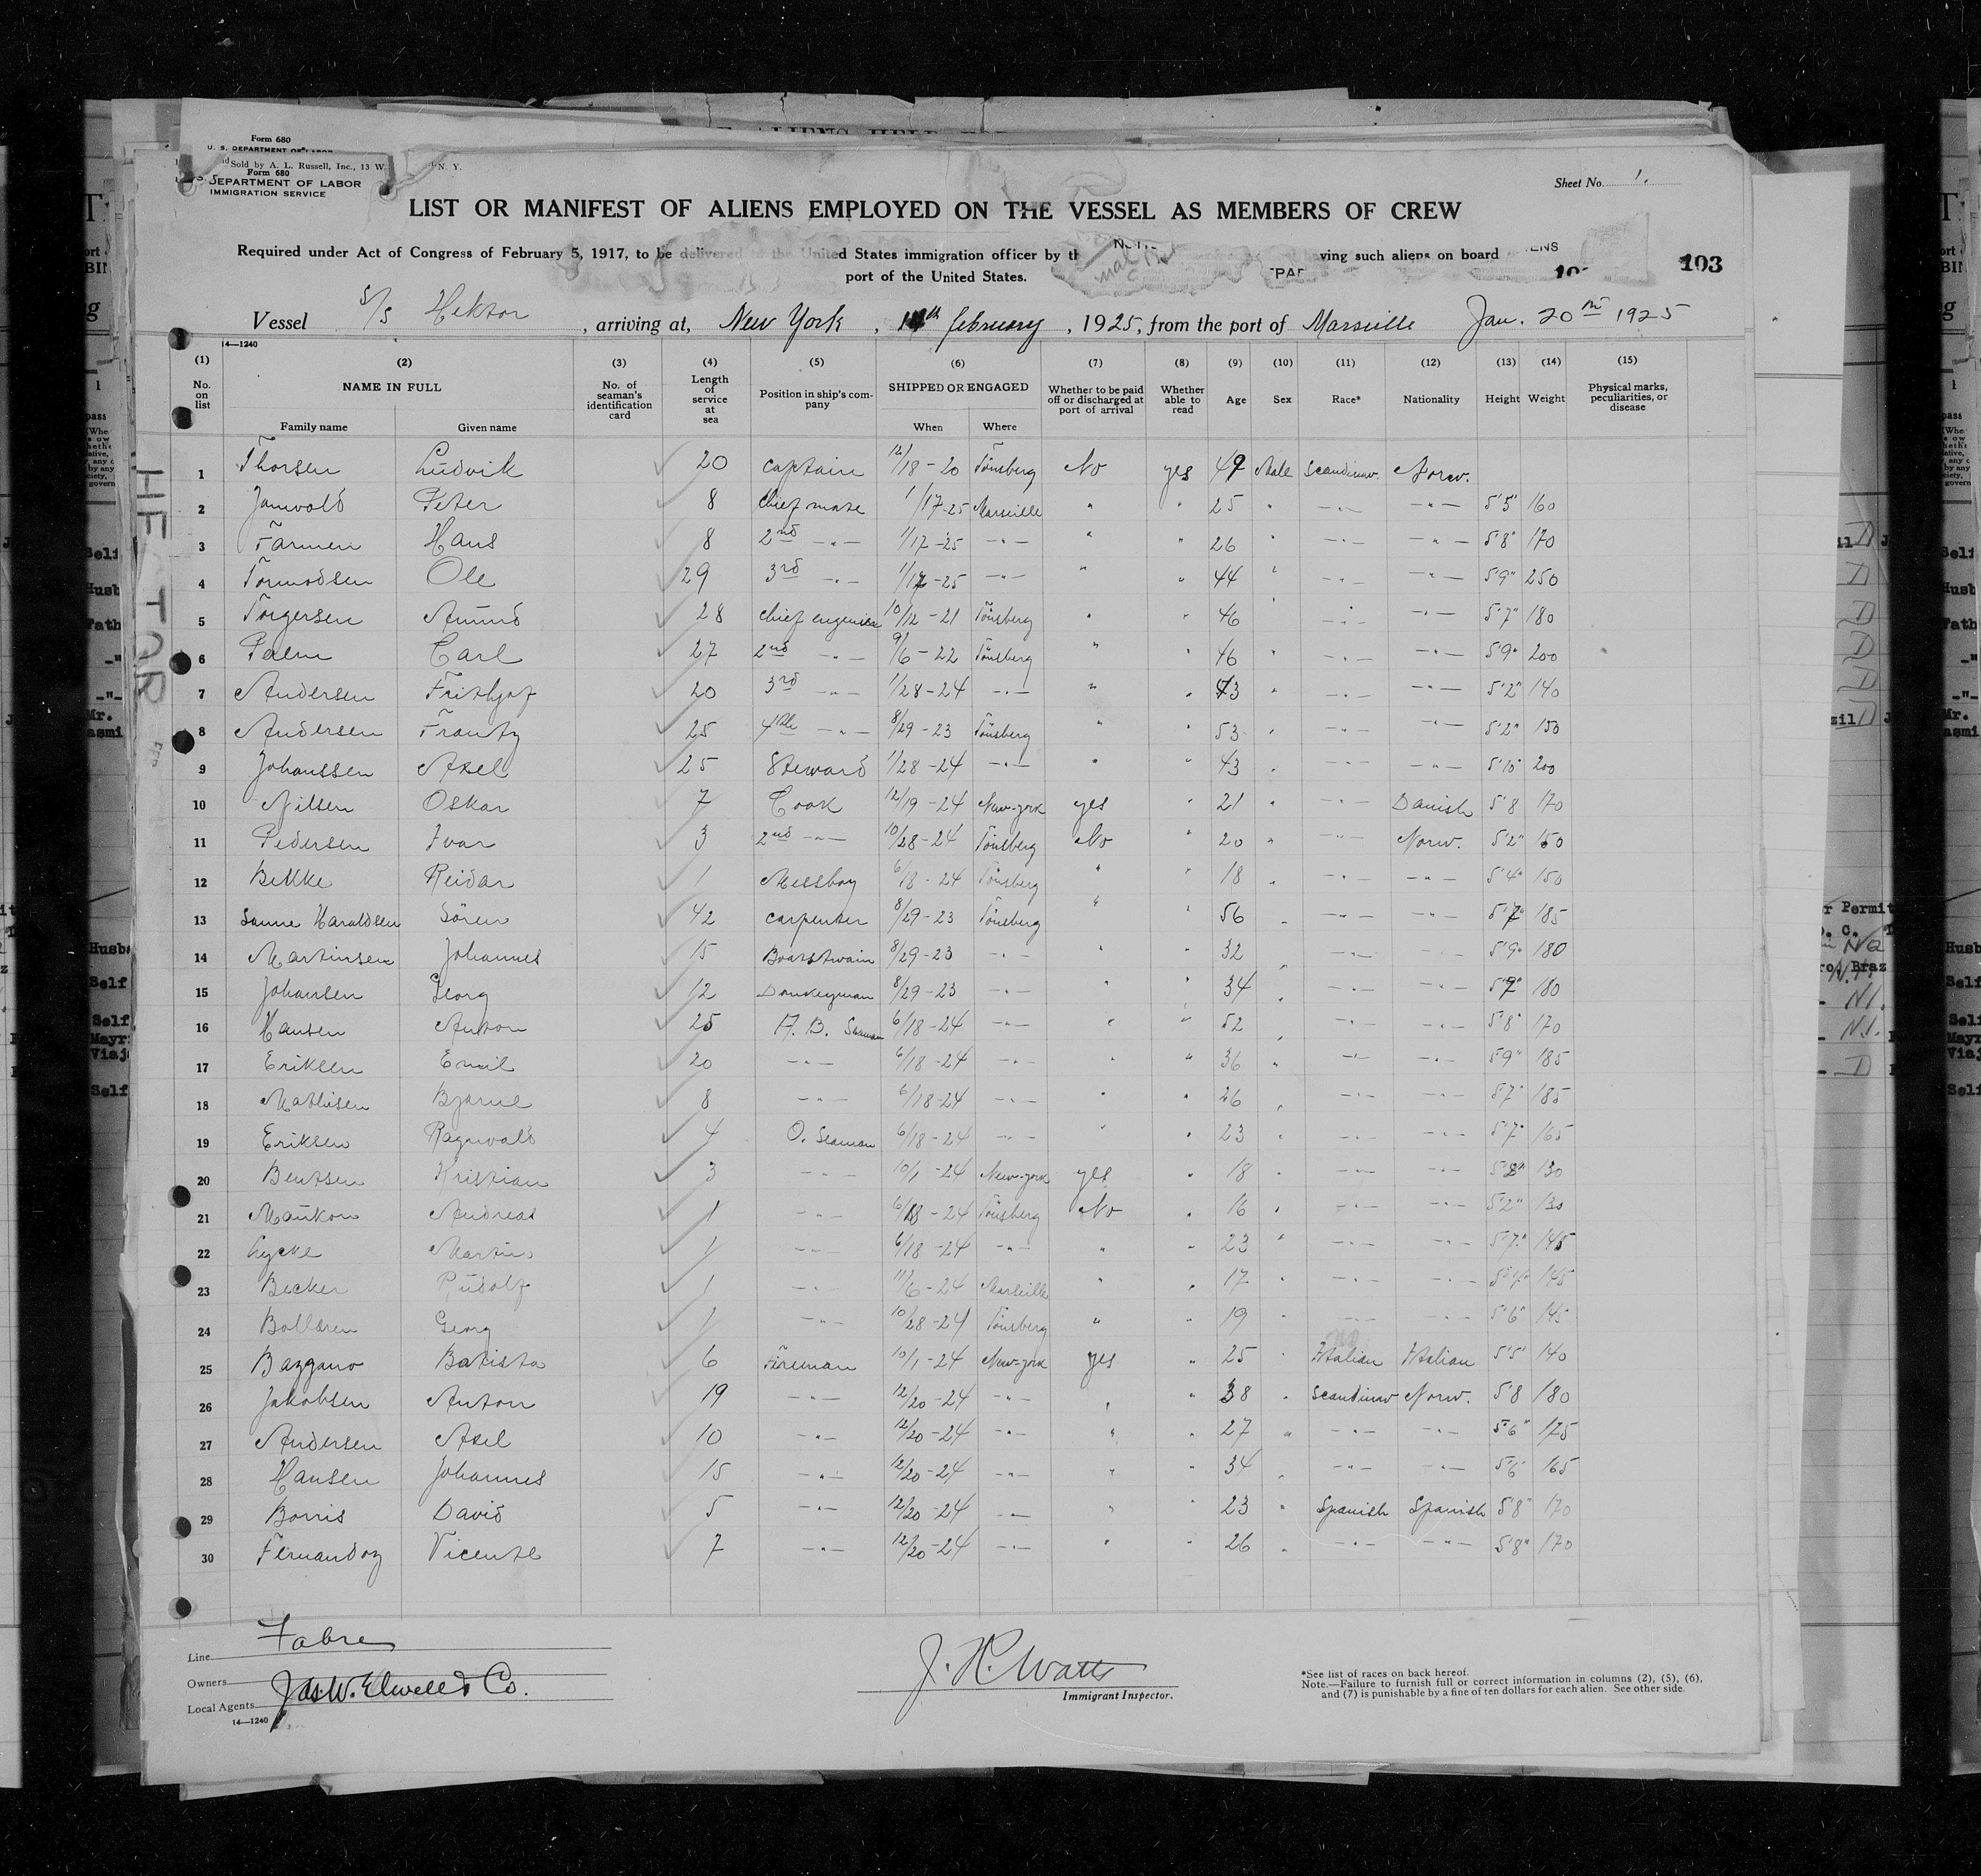 Form 680
U. S. DEPARTMENT OF LABOR
Sold by A. L. Russell, Inc., 13 W. N. Y.
Form 680
DEPARTMENT OF LABOR
IMMIGRATION SERVICE
Sheet No. 1.
LIST OR MANIFEST OF ALIENS EMPLOYED ON THE VESSEL AS MEMBERS OF CREW
Required under Act of Congress of February 5, 1917, to be delivered to the United States immigration officer by th ving such aliens on board
port of the United States.
103
Vessel S/S Hektor, arriving at, New York, 14th february, 1925, from the port of Marseille Jan. 20th 1925
14—1240
(1) (2) (3) (4) (5) (6) (7) (8) (9) (10) (11) (12) (13) (14) (15)
No. on list NAME IN FULL Family name Given name No. of seaman's identification card Length of service at sea Position in ship's company SHIPPED OR ENGAGED When Where Whether to be paid off or discharged at port of arrival Whether able to read Age Sex Race* Nationality Height Weight Physical marks, peculiarities, or disease
1 Thorsen Ludvik 20 captain 12/18-20 Tönsberg No yes 49 Male Scandinav. Norw.
2 Peter 8 Chief mate 1/17-25 Marseille " " 25 " -"- -"- 5'5" 160
3 Farmen Hans 8 2nd -"- 1/17-25 -"- " " 26 " -"- -"- 5'8" 170
4 Tormodsen Ole 29 3rd -"- 1/17-25 -"- " " 44 " -"- -"- 5'9" 250
5 Torgersen Amund 28 Chief engineer 10/12-21 Tönsberg " " 46 -"- -"- 5'7" 180
6 Palm Carl 27 2nd -"- 9/6-22 Tönsberg " " 46 " -"- -"- 5'9" 200
7 Andersen Frithjof 20 3rd -"- 1/28-24 -"- " " 43 " -"- -"- 5'2" 140
8 Andersen Frantz 25 4th -"- 8/29-23 Tönsberg " " 53 " -"- -"- 5'2" 150
9 Johanssen Axel 25 Steward 1/28-24 -"- " " 43 " -"- -"- 5'10" 200
10 Nilsen Oskar 7 Cook 12/19-24 New-york yes " 21 " -"- Danish 5'8 170
11 Pedersen Ivar 3 2nd -"- 10/28-24 Tönsberg No " 20 " -"- Norw. 5'2" 150
12 Bekke Reidar 1 Messboy 6/18-24 Tönsberg " " 18 " -"- -"- 5'4" 150
13 Sanne Haraldsen Sören 42 carpenter 8/29-23 Tönsberg " " 56 " -"- -"- 5'7" 185
14 Martinsen Johannes 15 Boatstwain 8/29-23 -"- " " 32 " -"- -"- 5'9" 180
15 Johansen Georg 12 Donkeyman 8/29-23 -"- " " 34 " -"- -"- 5'9" 180
16 Hansen Anton 25 A. B. Seaman 6/18-24 -"- " " 52 " -"- -"- 5'8" 170
17 Eriksen Emil 20 -"- 6/18-24 -"- " " 36 " -"- -"- 5'9" 185
18 Mathisen Bjarne 8 -"- 6/18-24 -"- " " 26 " -"- -"- 5'7" 185
19 Eriksen Ragnvald 4 O. Seaman 6/18-24 -"- " " 23 " -"- -"- 5'7" 165
20 Bentsen Kristian 3 -"- 10/1-24 New-york yes " 18 " -"- -"- 5'8" 130
21 Andreas 1 -"- 6/18-24 Tönsberg No " 16 " -"- -"- 5'2" 130
22 Lycke Martin 1 -"- 6/18-24 -"- " " 23 " -"- -"- 5'7" 145
23 Becker Rudolf 1 -"- 11/6-24 Marseille " " 17 " -"- -"- 145
24 Georg 1 -"- 10/28-24 Tönsberg " " 19 " -"- -"- 5'6" 145
25 Bazzano Batista 6 Fireman 10/1-24 New-york yes " 25 " Italian Italian 5'5" 140
26 Jakobsen Anton 19 -"- 12/20-24 -"- " " 38 " Scandinav Norw. 5'8 180
27 Andersen Axel 10 -"- 12/20-24 -"- " " 27 " -"- -"- 5'6" 175
28 Hansen Johannes 15 -"- 12/20-24 -"- " " 34 " -"- -"- 5'6 165
29 Borris David 5 -"- 12/20-24 -"- " " 23 " Spanish Spanish 5'8" 170
30 Fernandoz Vicente 7 -"- 12/20-24 -"- " " 26 " -"- -"- 5'8" 170
HEKTOR
Line Fabre
Owners
Local Agents Jas. W. Elwell & Co.
14—1240
J. R. Watts
Immigrant Inspector.
*See list of races on back hereof.
Note.—Failure to furnish full or correct information in columns (2), (5), (6),
and (7) is punishable by a fine of ten dollars for each alien. See other side.